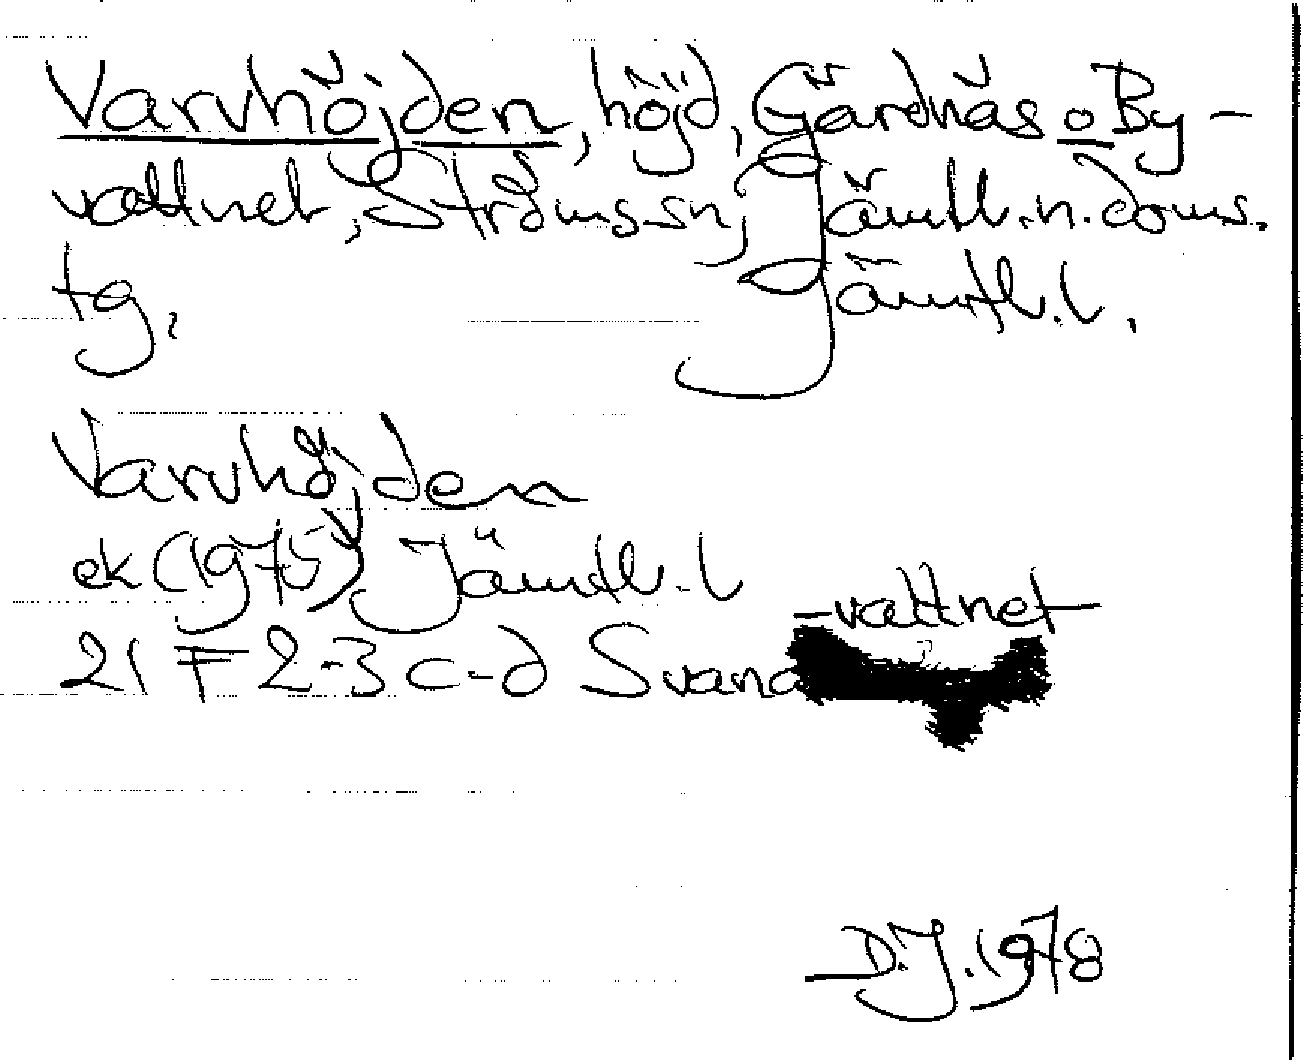 Varvhöjden, höjd, Gärdnäs o By-
vattnet, Ströms sn, Jämtl. n. doms.
tg, Jämtl. l.
Varvhöjden
ek (1975) Jämtl. l
-vattnet
21 F 2-3 c-d Svana
D.J. 1978